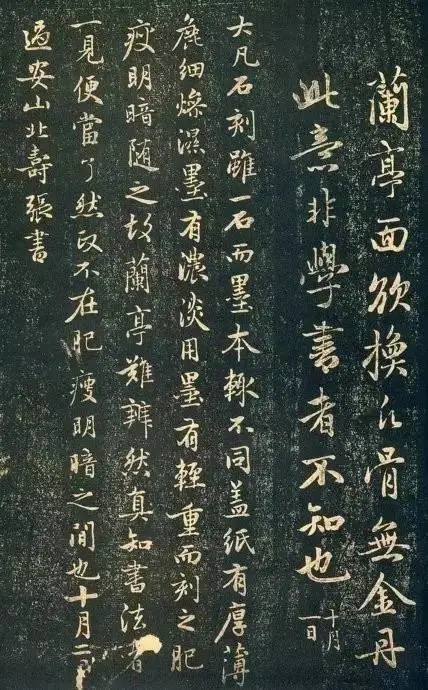 蘭亭面欲換凡骨無金丹
此意非學書者不知也十月
一日
大凡石刻雖一石而墨本輒不同盖紙有厚薄
麁細燥濕墨有濃淡用墨有輕重而刻之肥
瘦明暗随之故蘭亭難辨然真知書法者
一見便當了然政不在肥瘦明暗之間也十月二日
過安山北壽張書